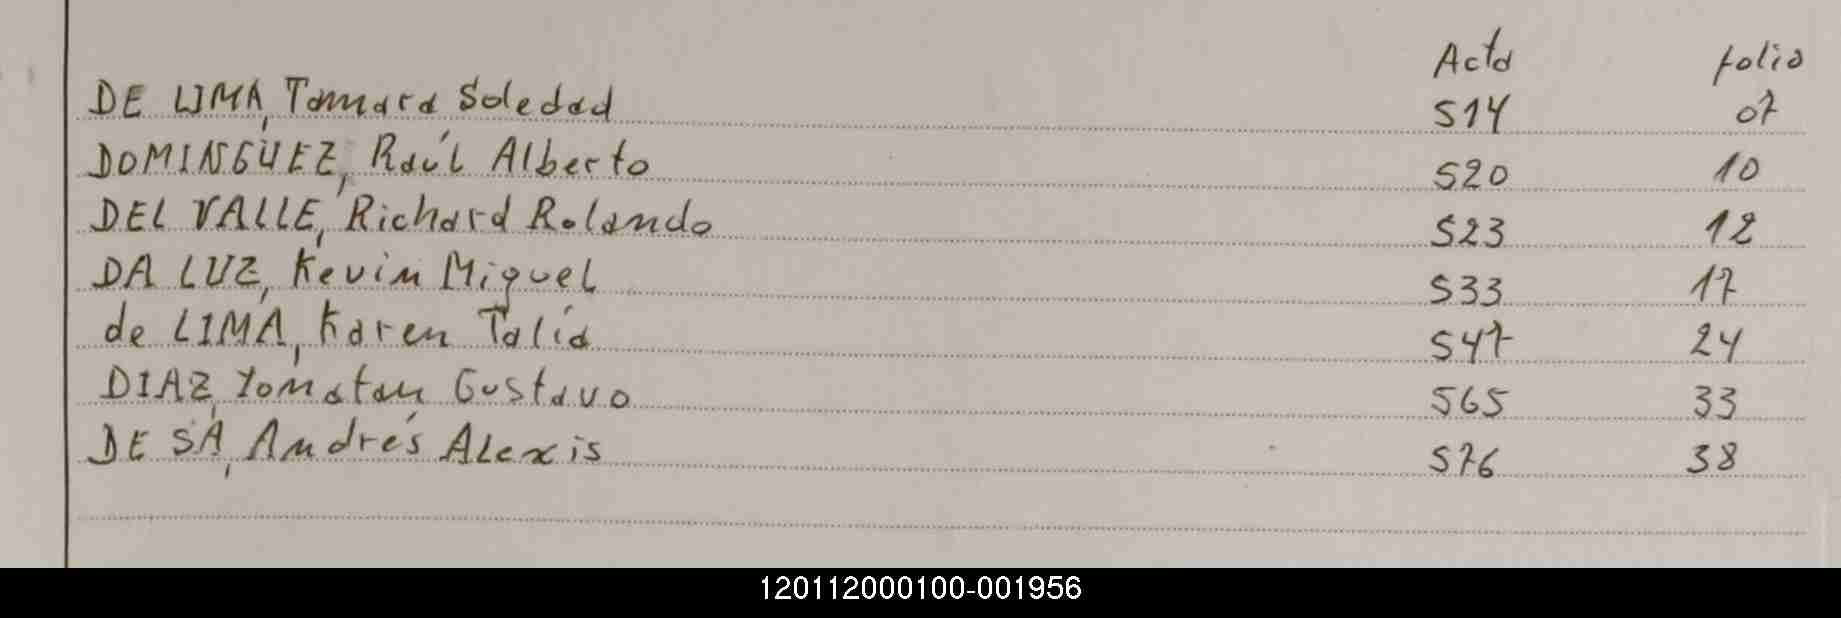 Acta folio
DE LIMA, Tamara Soledad 514 07
DOMINGUEZ, Raúl Alberto 520 10
DEL VALLE, Richard Rolando 523 12
DA LUZ, Kevin Miguel 533 17
de LIMA, Karen Talía 547 24
DIAZ, Yonatan Gustavo 565 33
DE SÁ, Andrés Alexis 576 38
120112000100-001956